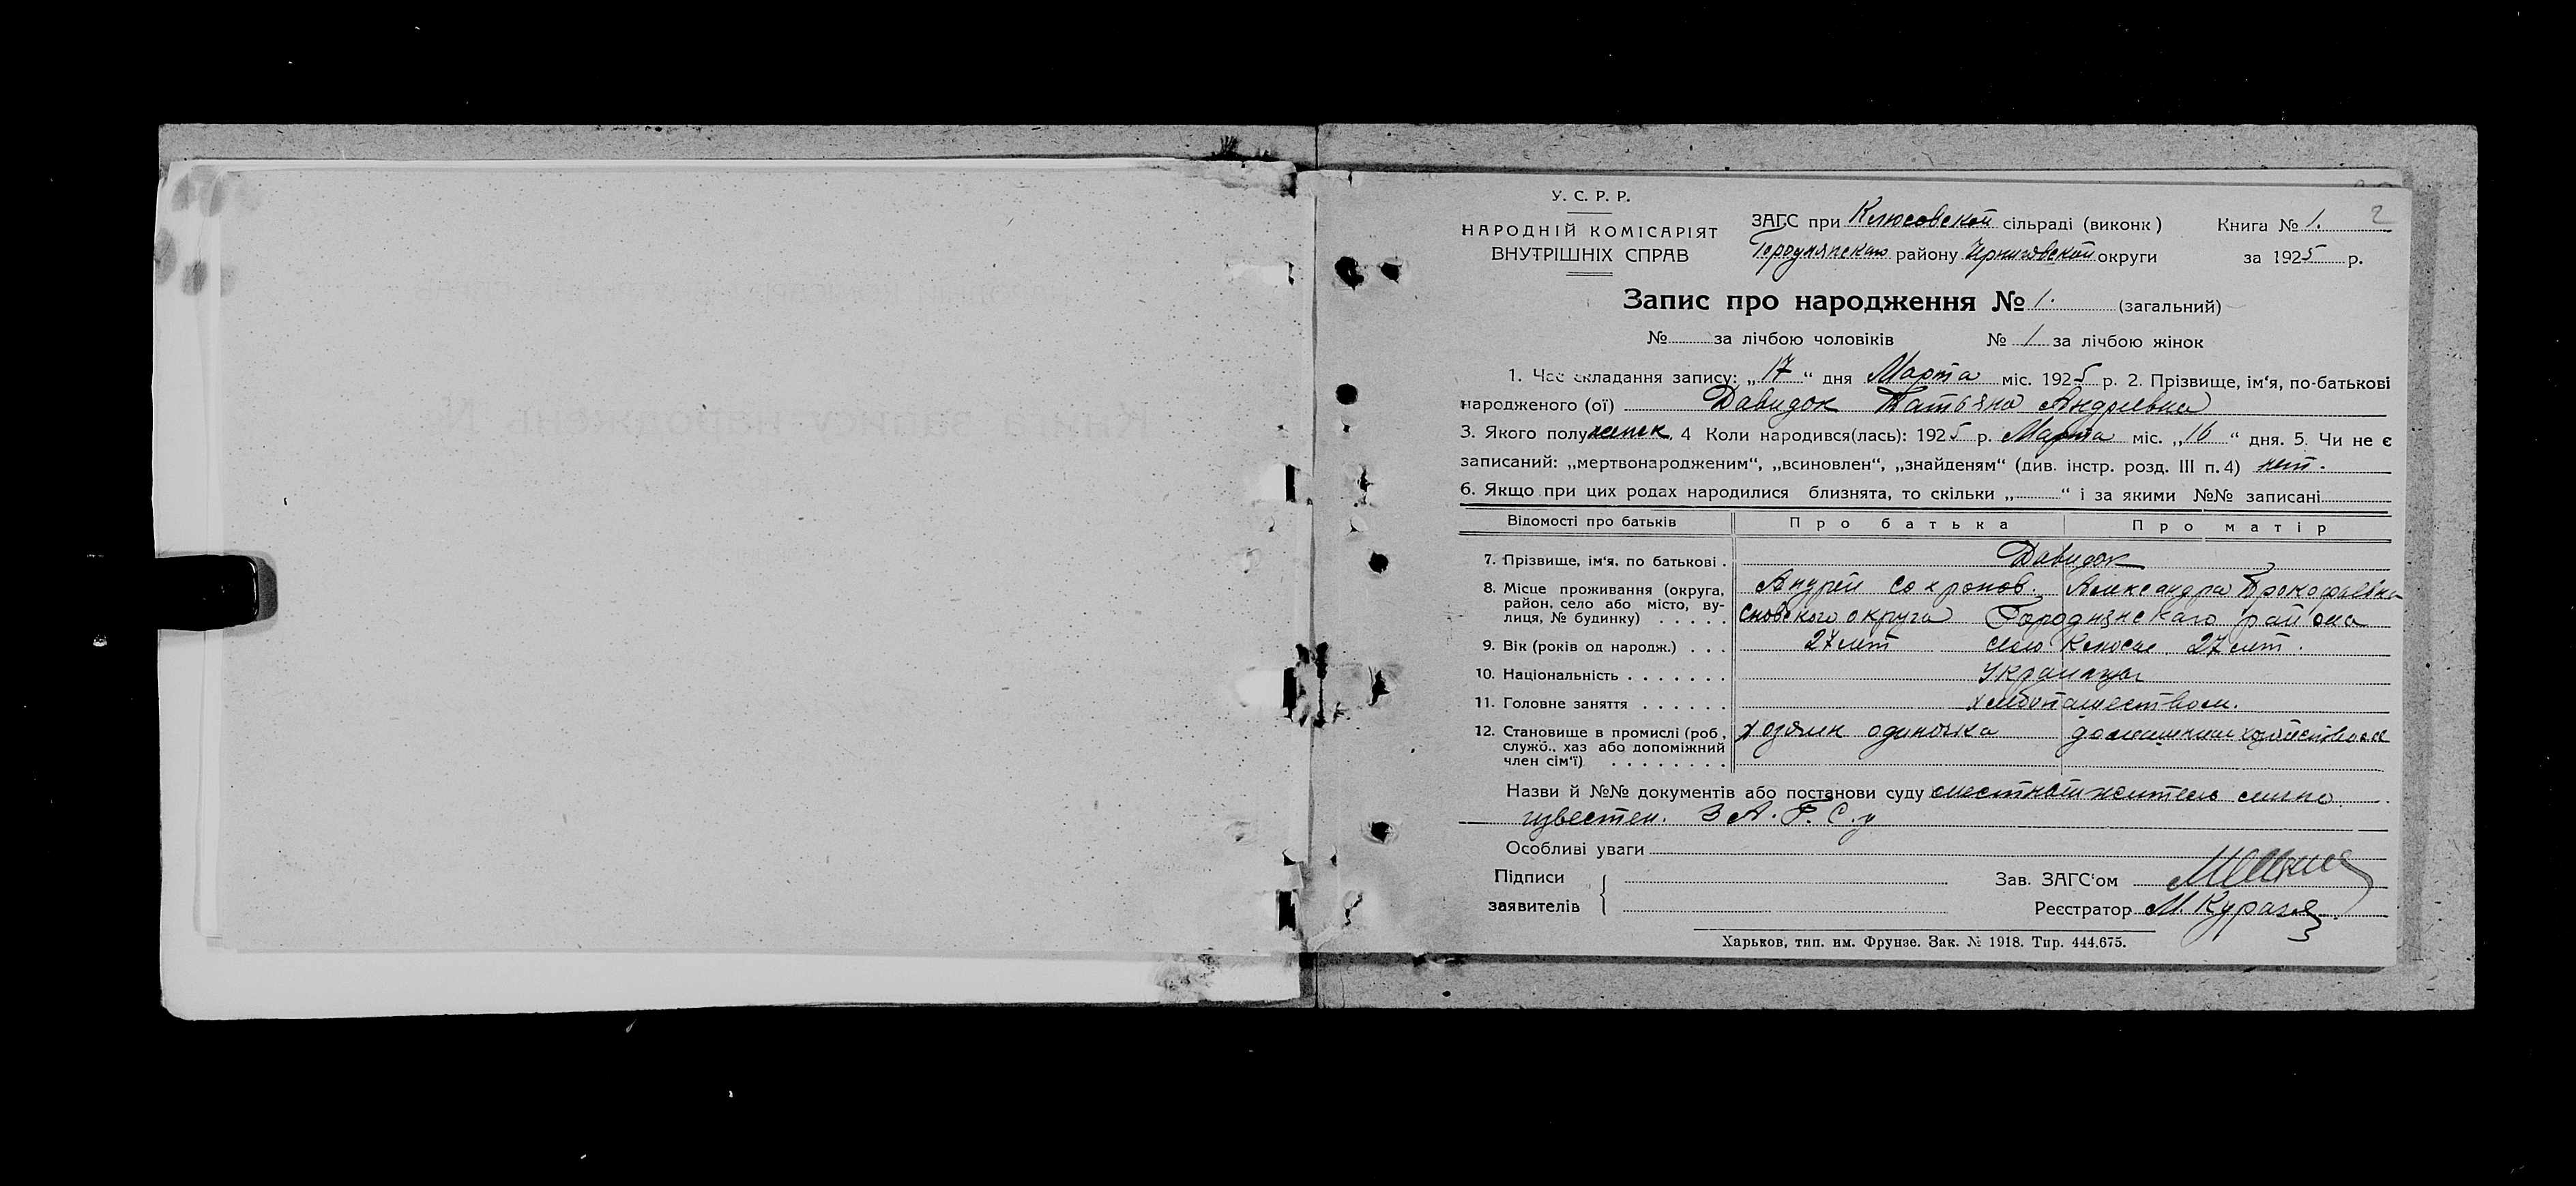 У. С. Р. Р.
НАРОДНІЙ КОМІСАРІЯТ
ВНУТРІШНІХ СПРАВ
ЗАГС при Клюсовской сільраді (виконк)
Книга № 1.
2
Городнянского району Черниговской округи
за 1925 р.
Запис про народження № 1. (загальний)
№ за лічбою чоловіків № 1 за лічбою жінок
1. Час складання запису: „17“ дня Марта міс. 1925 р. 2. Прізвище, ім‘я, по-батькові
народженого (ої) Давидок Татьяна Андреевна
3. Якого полу женск. 4 Коли народився(лась): 1925 р. Марта міс. „16“ дня. 5. Чи не є
записаний: „мертвонародженим“, „всиновлен“, „знайденям“ (див. інстр. розд. III п. 4) нет.
6. Якщо при цих родах народилися близнята, то скільки „ “ і за якими №№ записані
Відомості про батьків Про батька Про матір
7. Прізвище, ім‘я, по батькові . Давидок
8. Місце проживання (округа, Андрей Сохронов. Александра Прокофьевна
район, село або місто, ву-
лиця, № будинку) . . . . . сновского округа Городнянского района
9. Вік (років од народж.) . . . 27 лет село Клюсы 27 лет.
10. Національність . . . . . . . Украинцы
11. Головне заняття . . . . . . хлебопашеством.
12. Становище в промислі (роб., хозяин одиночка домашним хозяйством
служб., хаз або допоміжний
член сім‘ї) . . . . . . . .
Назви й №№ документів або постанови суду местный житель лично
известен. З А. Г. С. у
Особливі уваги
Підписи
заявителів
Зав. ЗАГС‘ом
Реєстратор М. Кураз
Харьков, тип. им. Фрунзе. Зак. № 1918. Тир. 444.675.